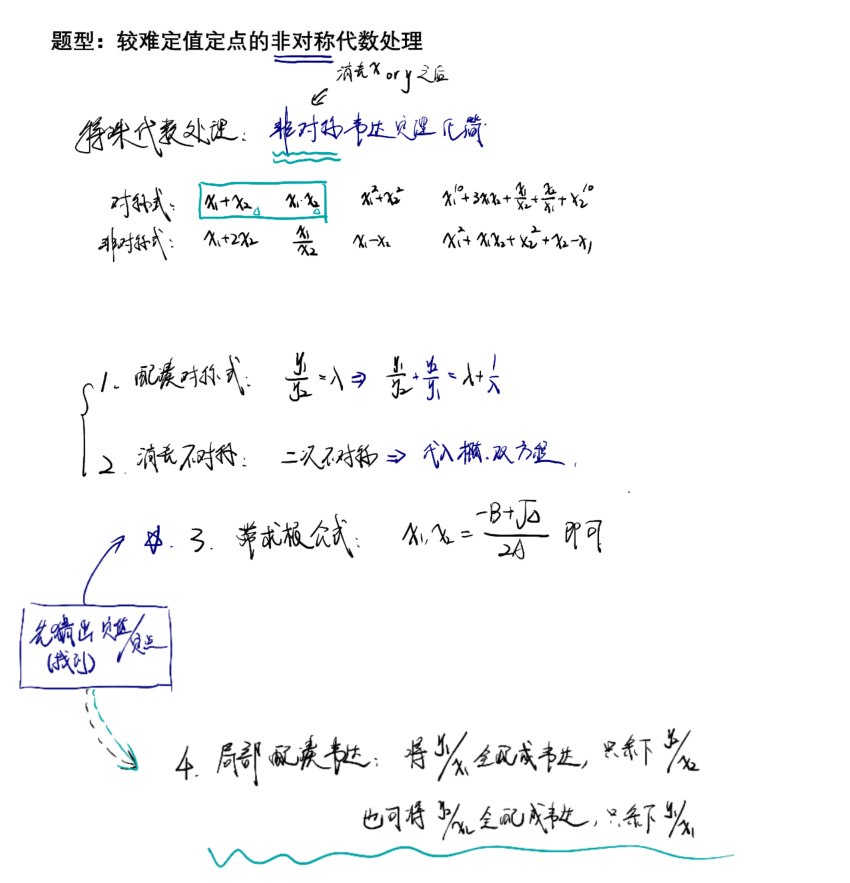 题型：较难定值定点的非对称代数处理
消去x or y 之后
特殊代数处理：非对称韦达定理化简
对称式： x₁+x₂ x₁·x₂ x₁²+x₂² x₁¹⁰+3x₁x₂+x₁/x₂+x₂/x₁+x₂¹⁰
非对称式： x₁+2x₂ x₁/x₂ x₁-x₂ x₁²+x₁x₂+x₂²+x₂-x₁
1. 配凑对称式： y₁/y₂=λ ⇒ y₁/y₂+y₂/y₁=λ+1/λ
2. 消去不对称： 二次不对称 ⇒ 代入椭.双方程.
☆. 3. 带求根公式： x₁,x₂ = (-B+√Δ)/2A 即可
先猜出定值/定点
(找到)
4. 局部配凑韦达：将y₁/x₁全配成韦达，只余下y₂/x₂
也可将y₂/x₂全配成韦达，只余下y₁/x₁